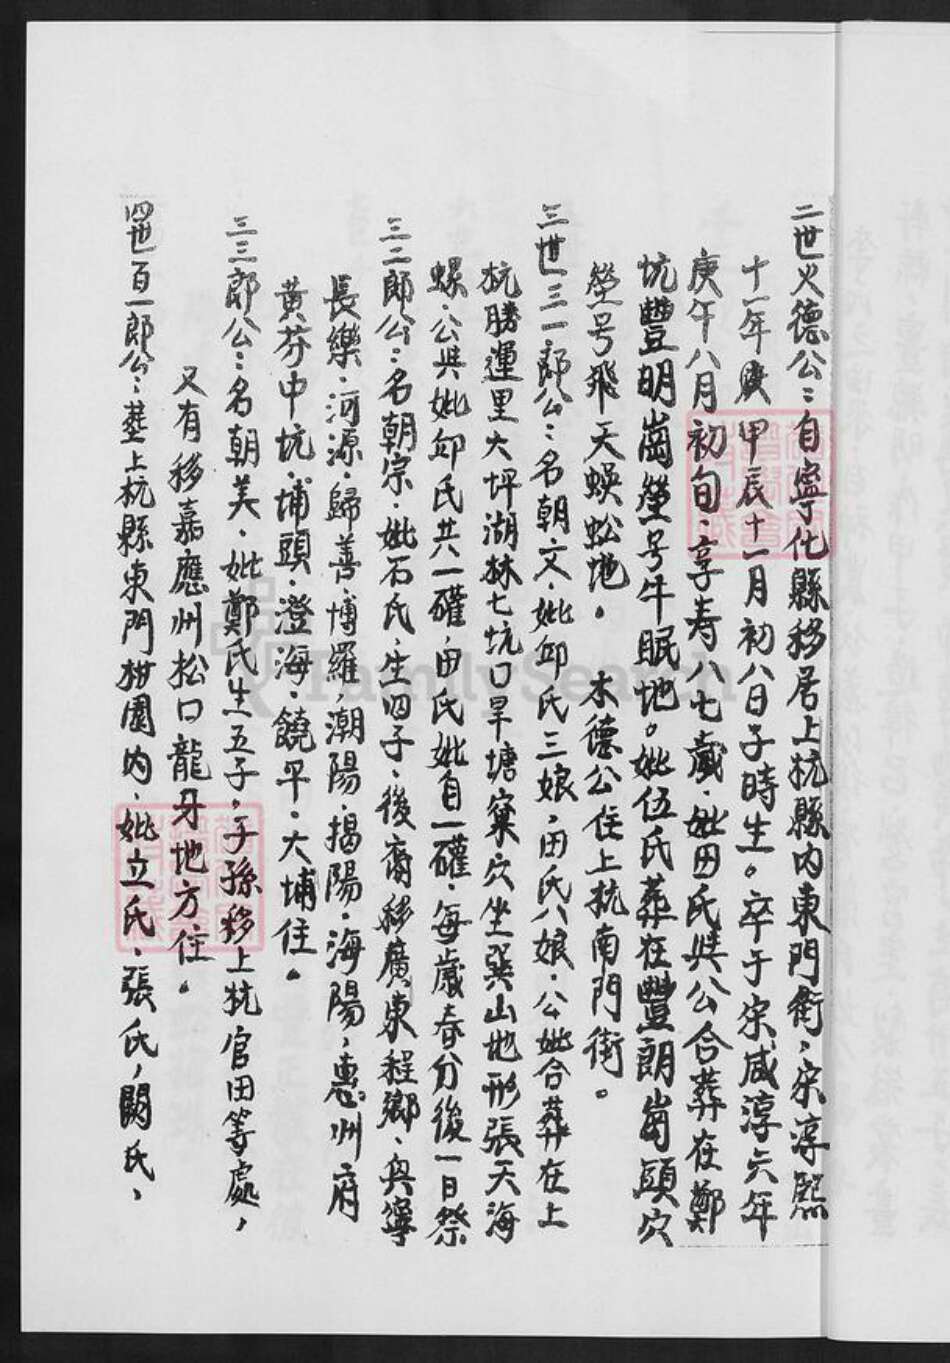 二世火德公：自寧化縣移居上杭縣內東門街，宋淳熙
十一年歲甲辰十一月初八日子時生。卒于宋咸淳六年
庚午八月初旬．享寿八七歲．妣田氏與公合葬在鄭
坑豐明崗塋号牛眠地。妣伍氏葬在豐朗崗頭穴
塋号飛天蜈蚣地。　木德公住上杭南門街。
三世三一郎公：名朝文．妣邱氏三娘．田氏八娘．公妣合葬在上
杭勝運里大坪湖林七坑口旱塘窠穴坐巽山地形張天海
螺．公與妣邱氏共一礶．田氏妣自一礶．每歲春分後一日祭
三二郎公：名朝宗．妣石氏．生四子．後裔移廣東程鄉．興寧
長樂．河源．歸善．博羅．潮陽．揭陽．海陽，惠州府
黄芬中坑．埔頭．澄海．饒平．大埔住。
三三郎公：名朝美．妣鄭氏生五子。子孫移上杭官田等處，
又有移嘉應州松口龍牙地方住。
四世百一郎公：塟上杭縣東門柑園内．妣立氏．張氏，闕氏，
FamilySearch